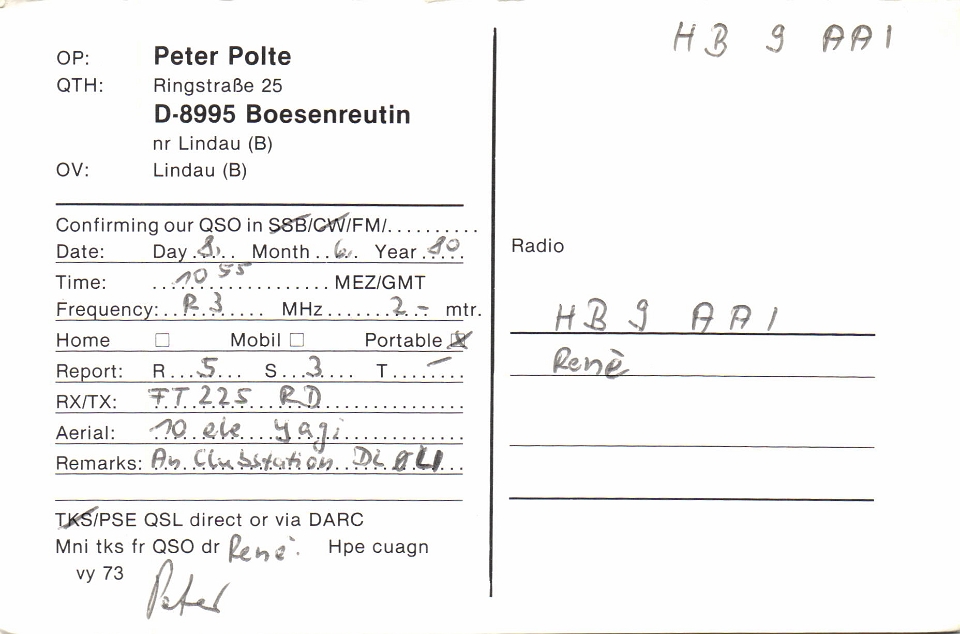 OP: Peter Polte
QTH: Ringstraße 25
D-8995 Boesenreutin
nr Lindau (B)
OV: Lindau (B)
Confirming our QSO in SSB/CW/FM/..........
Date: Day .8... Month ..6.. Year .80..
Time: ...10 55................ MEZ/GMT
Frequency:..R 3...... MHz.......2.- mtr.
Home ☐ Mobil ☐ Portable ☒
Report: R...5... S...3... T...–...
RX/TX: FT 225 RD
Aerial: 10 ele yagi
Remarks: An Clubstation DL
TKS/PSE QSL direct or via DARC
Mni tks fr QSO dr Renè. Hpe cuagn
vy 73
Peter
HB 9 AAI
Radio
HB 9 AAI
Renè